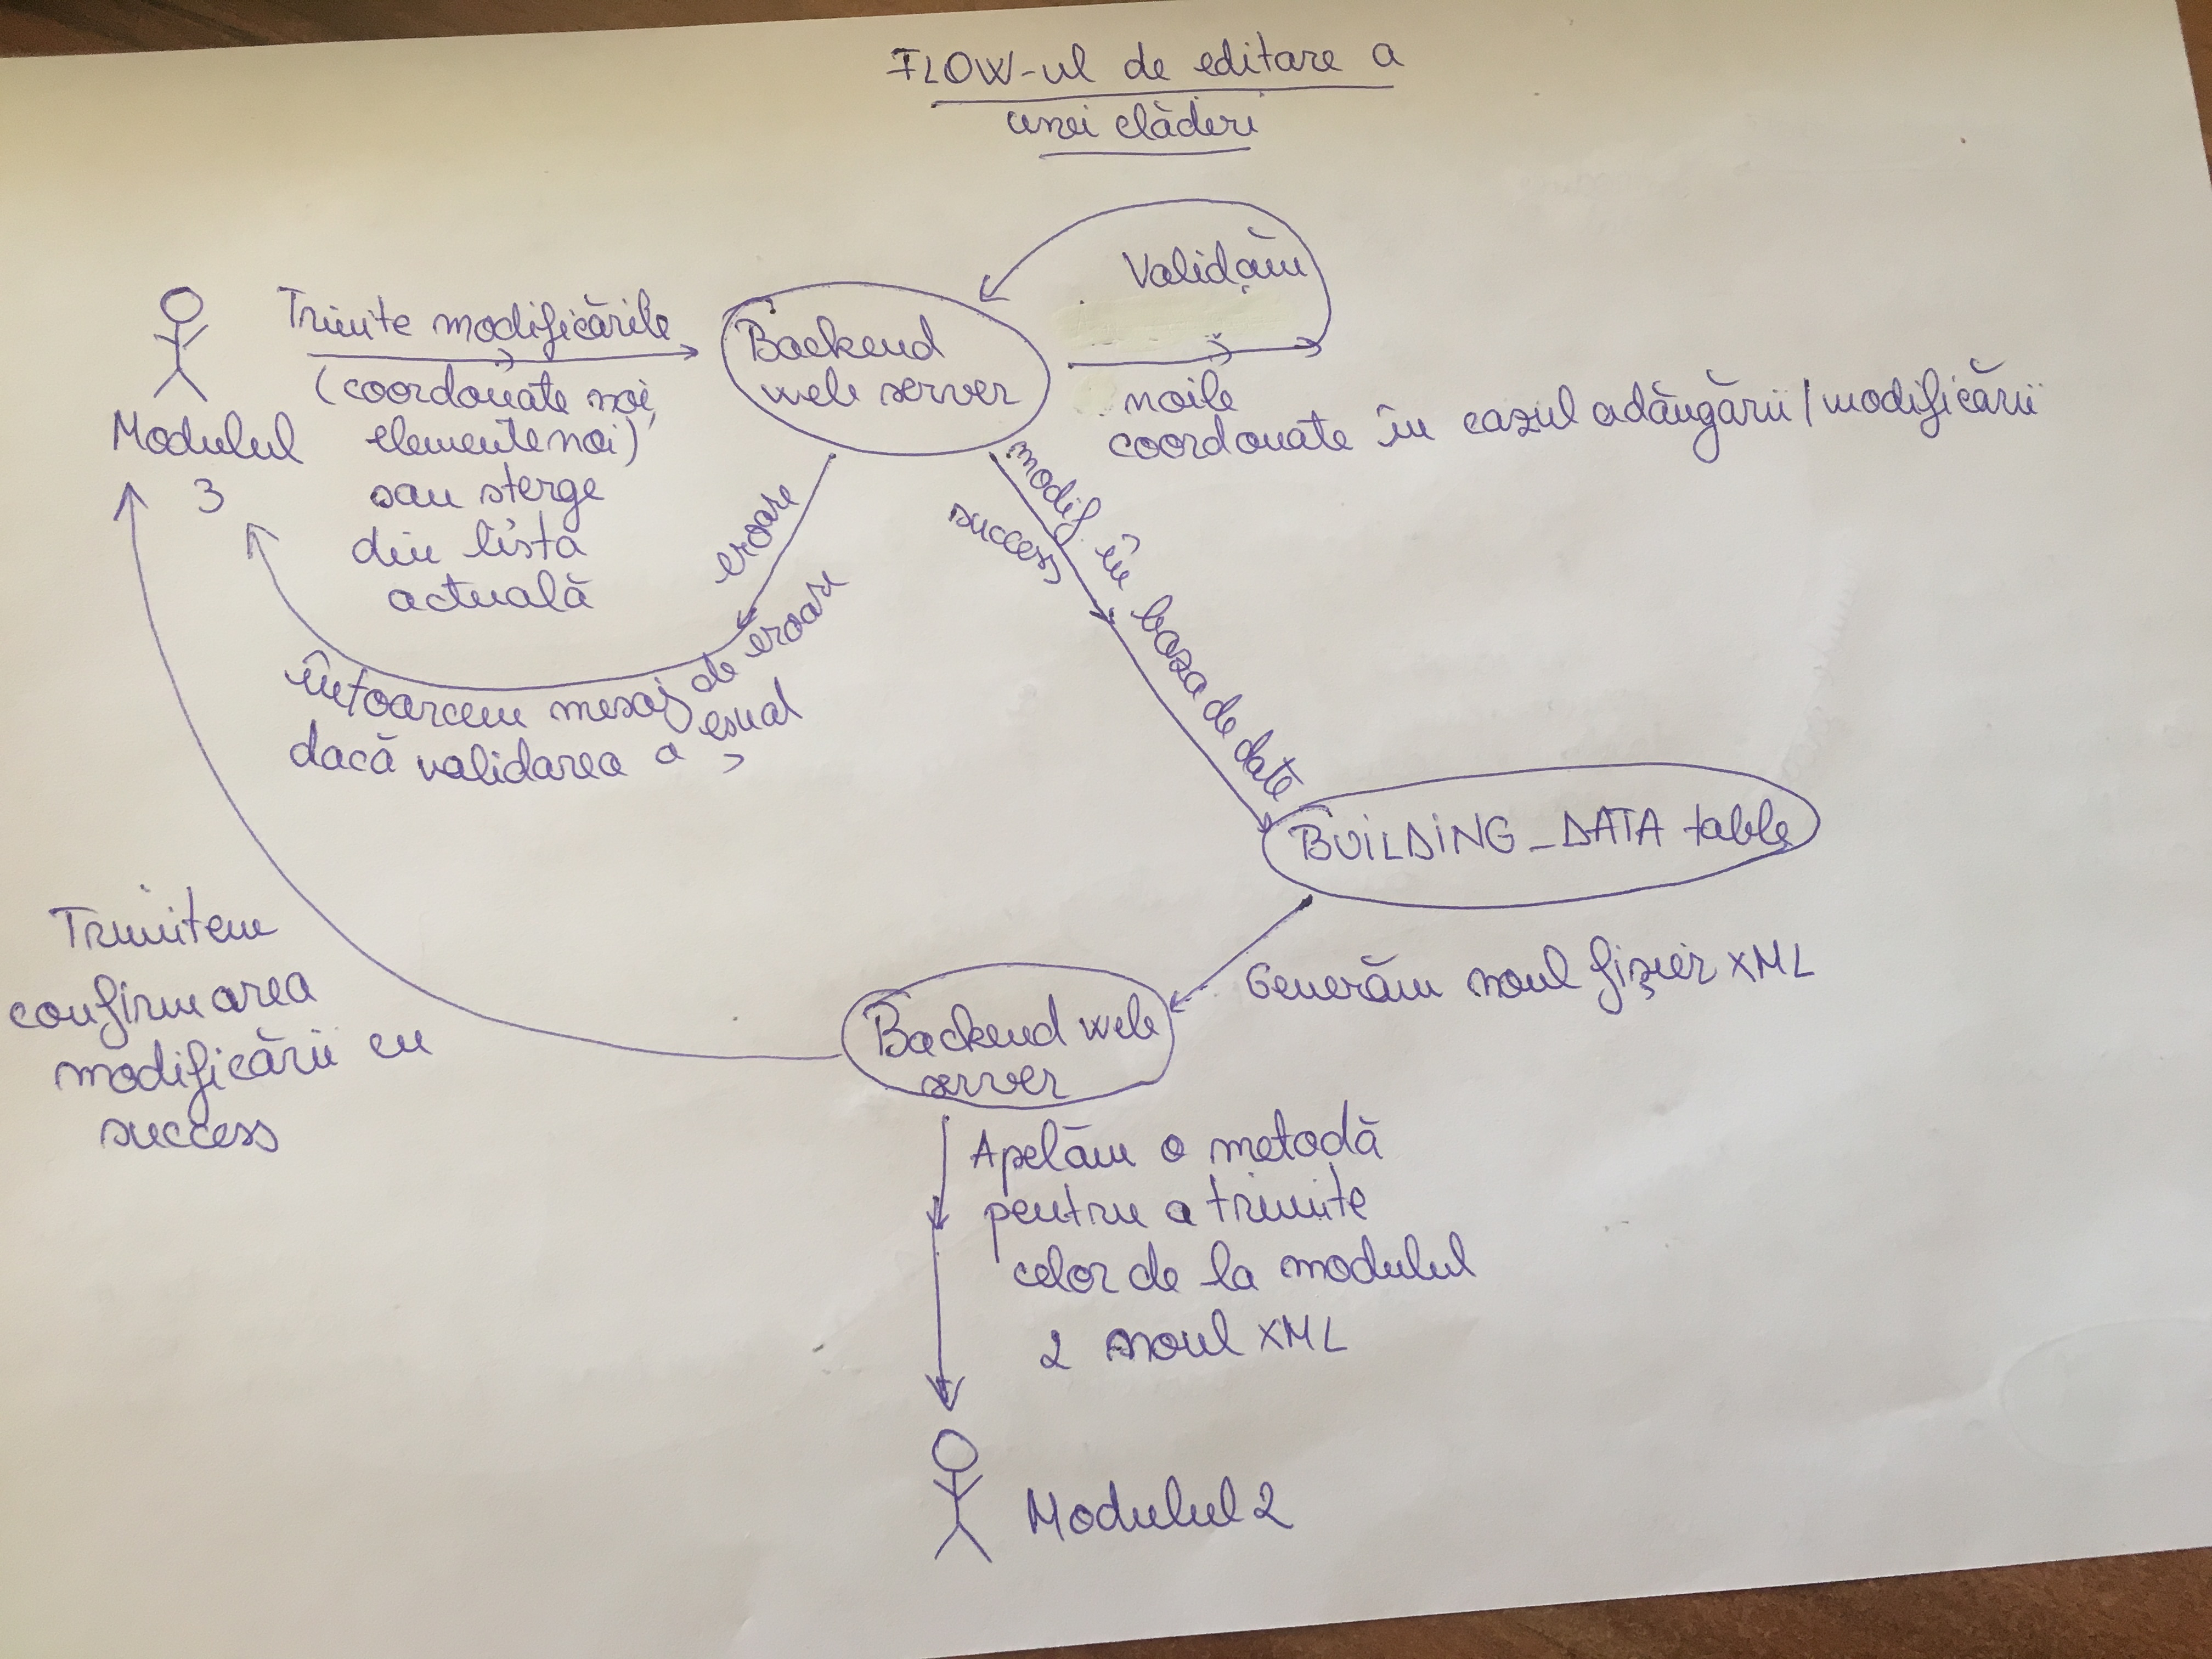 FLOW-ul de editare a
unei clădiri
Validăm
Trimite modificările
(coordonate noi,
elemente noi)
sau șterge
din lista
actuală
Modulul
3
Backend
web server
noile
coordonate în cazul adăugării/modificării
eroare
success
modif în baza de date
întoarcem mesaj de eroare
dacă validarea a eșuat
BUILDING_DATA table
Generăm noul fișier XML
Backend web
server
Trimitem
confirmarea
modificării cu
success
Apelăm o metodă
pentru a trimite
celor de la modulul
2 noul XML
Modulul 2